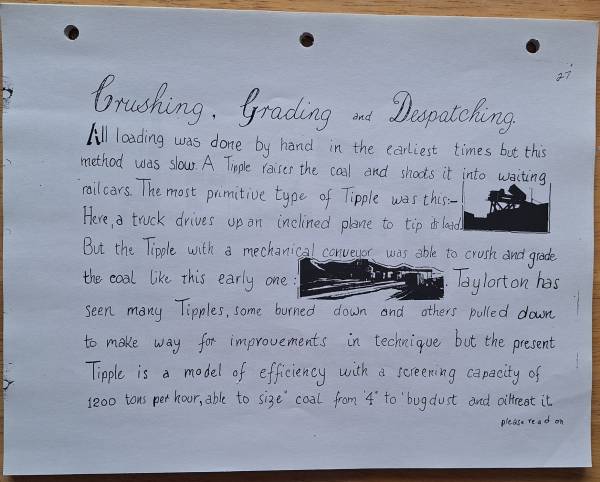 27
Crushing, Grading and Despatching.
All loading was done by hand in the earliest times but this
method was slow. A Tipple raises the coal and shoots it into waiting
railcars. The most primitive type of Tipple was this:-
Here, a truck drives up an inclined plane to tip its load.
But the Tipple with a mechanical conveyor was able to crush and grade
the coal like this early one: Taylorton has
seen many Tipples, some burned down and others pulled down
to make way for improvements in technique but the present
Tipple is a model of efficiency with a screening capacity of
1200 tons per hour, able to size" coal from "4" to 'bugdust and oiltreat it
please read on